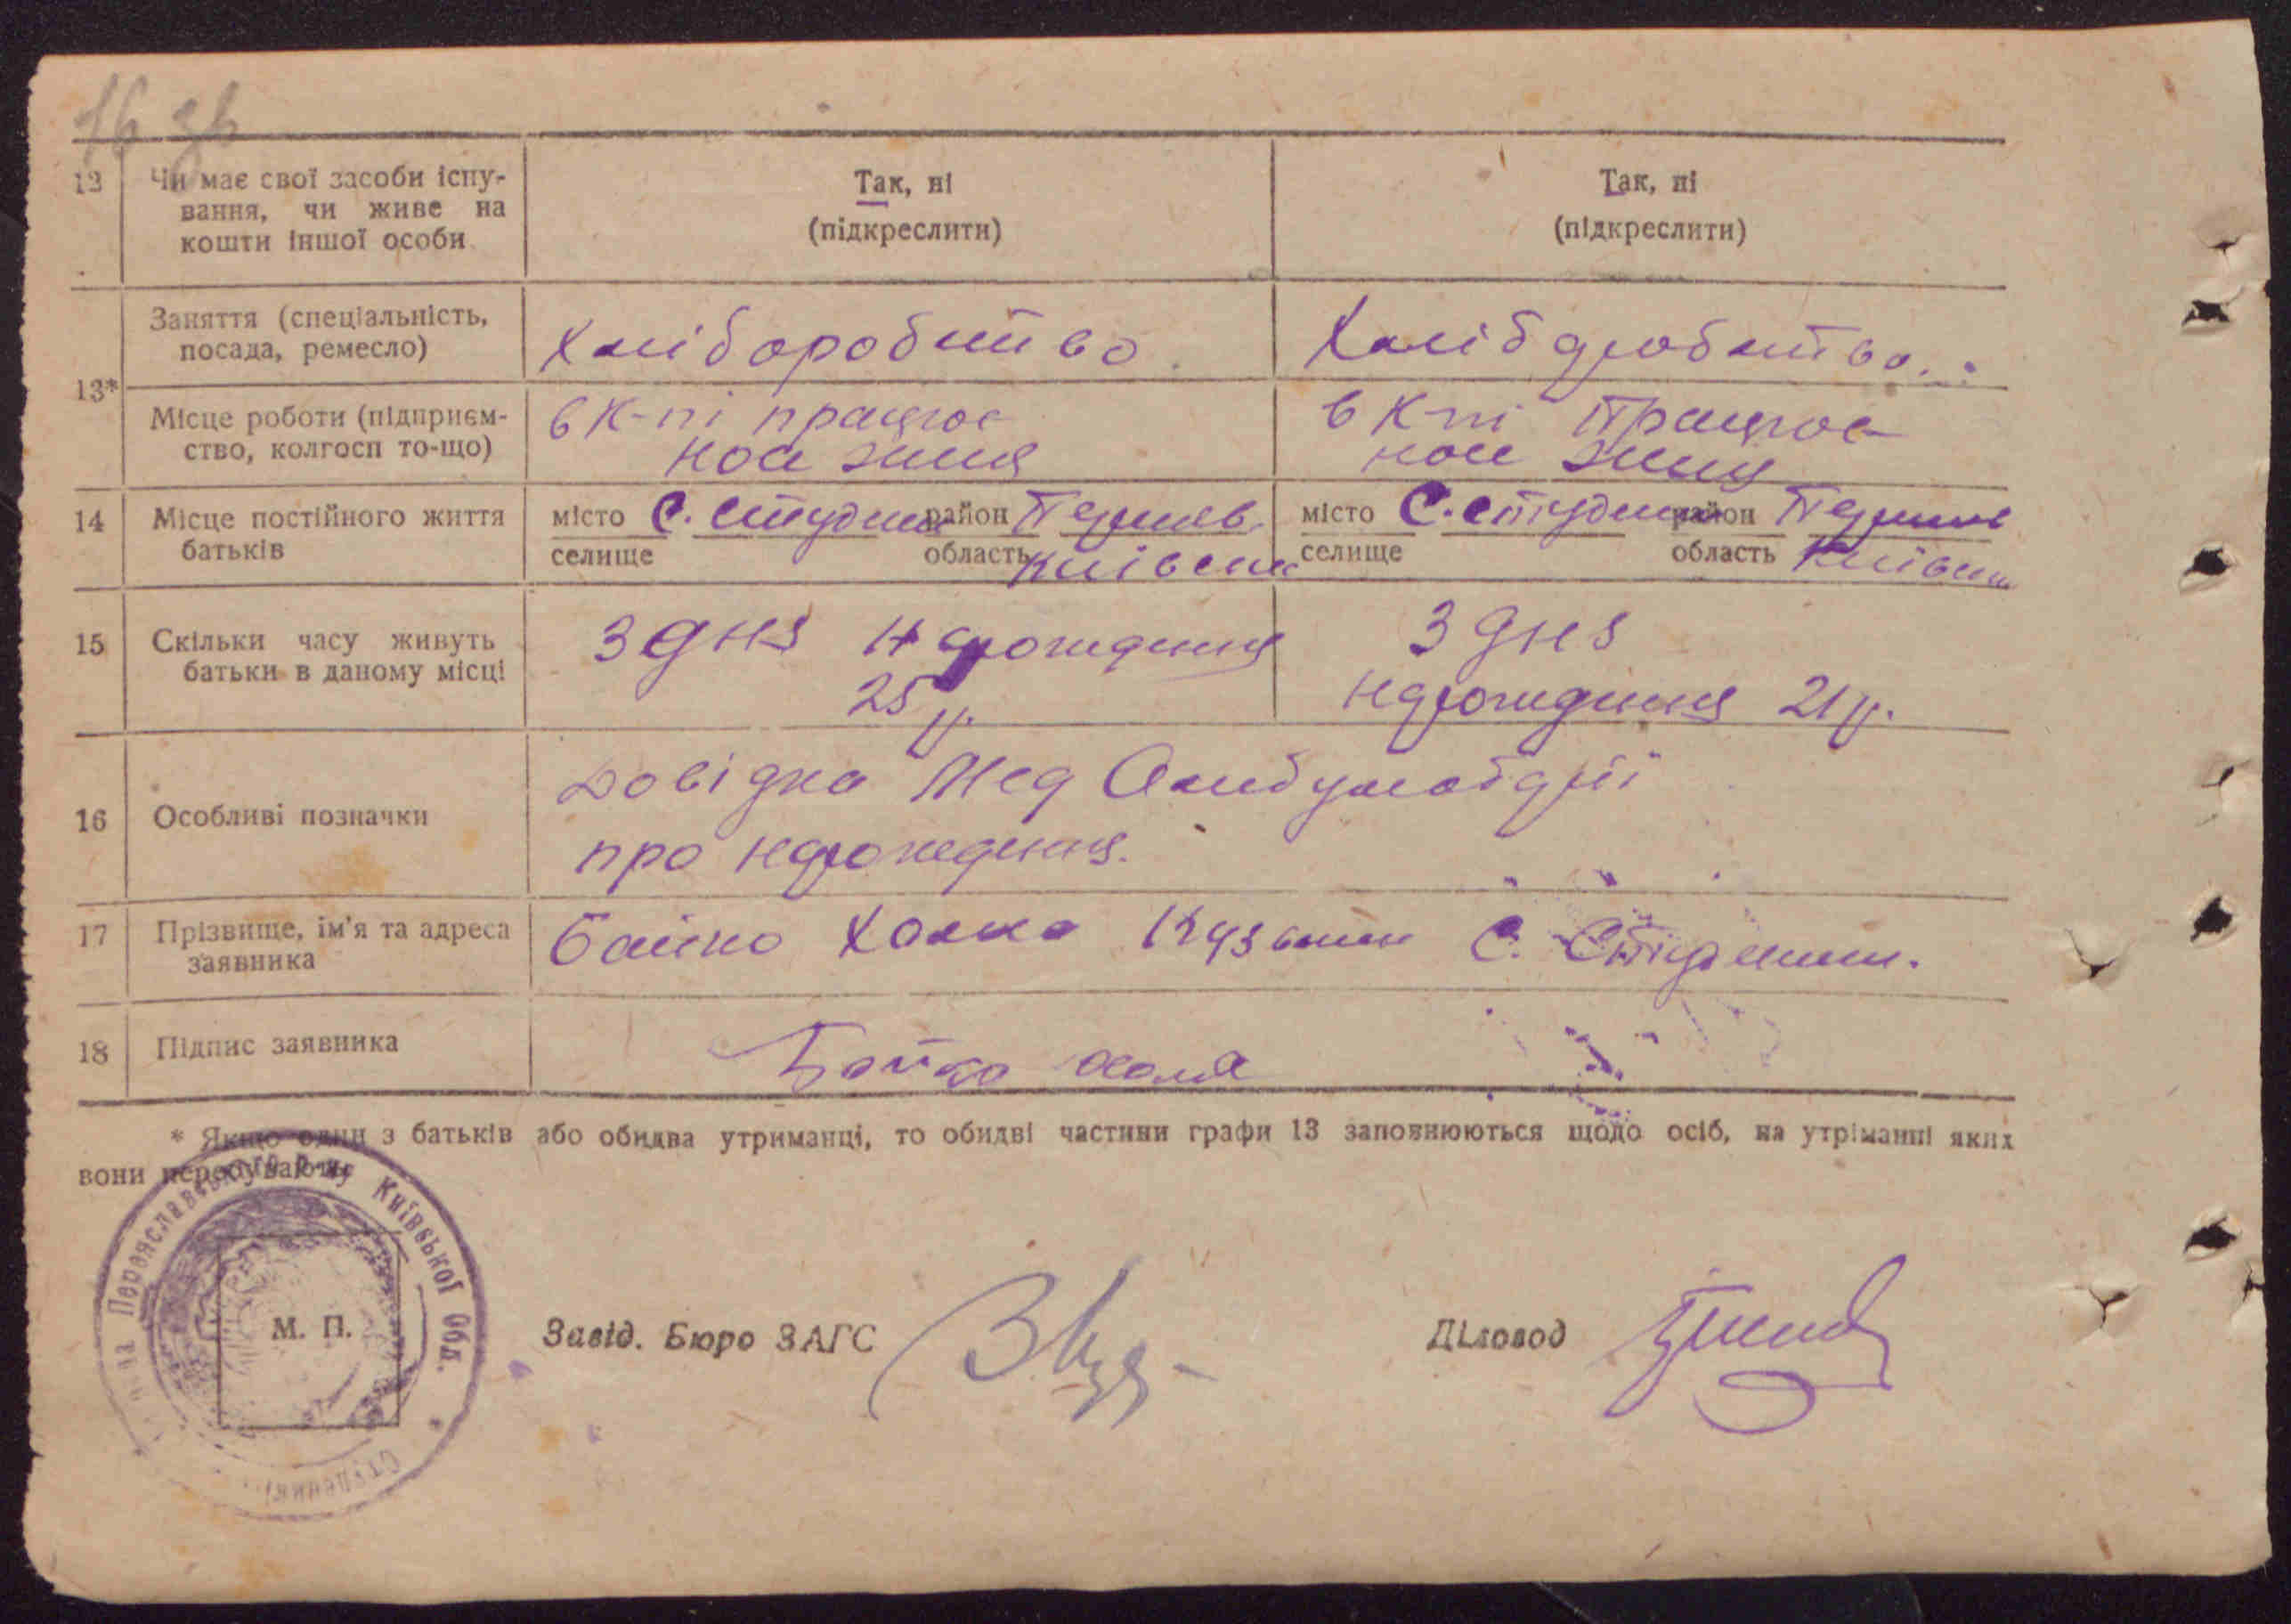 16 зв
12 Чи має свої засоби існу-
вання, чи живе на
кошти іншої особи
Так, ні
(підкреслити)
Так, ні
(підкреслити)
13*
Заняття (спеціальність,
посада, ремесло)
Хліборобство
Хліборобство.
Місце роботи (підприєм-
ство, колгосп то-що)
в к-пі працює
в к-пі працює
14 Місце постійного життя
батьків
місто с. район
селище область
місто с. район
селище область
15 Скільки часу живуть
батьки в даному місці
З дня нарождення
25 р.
З дня
нарождення 21 р.
16 Особливі позначки
Довідка Мед Амбулаторії
про нарождення.
17 Прізвище, ім'я та адреса
заявника
Бойко с.
18 Підпис заявника
Бойко
* Якщо один з батьків або обидва утриманці, то обидві частини графи 13 заповнюються щодо осіб, на утріманні яких
вони перебувають
Переяславського р-ну Київської Обл.
М. П.
Завід. Бюро ЗАГС
Діловод